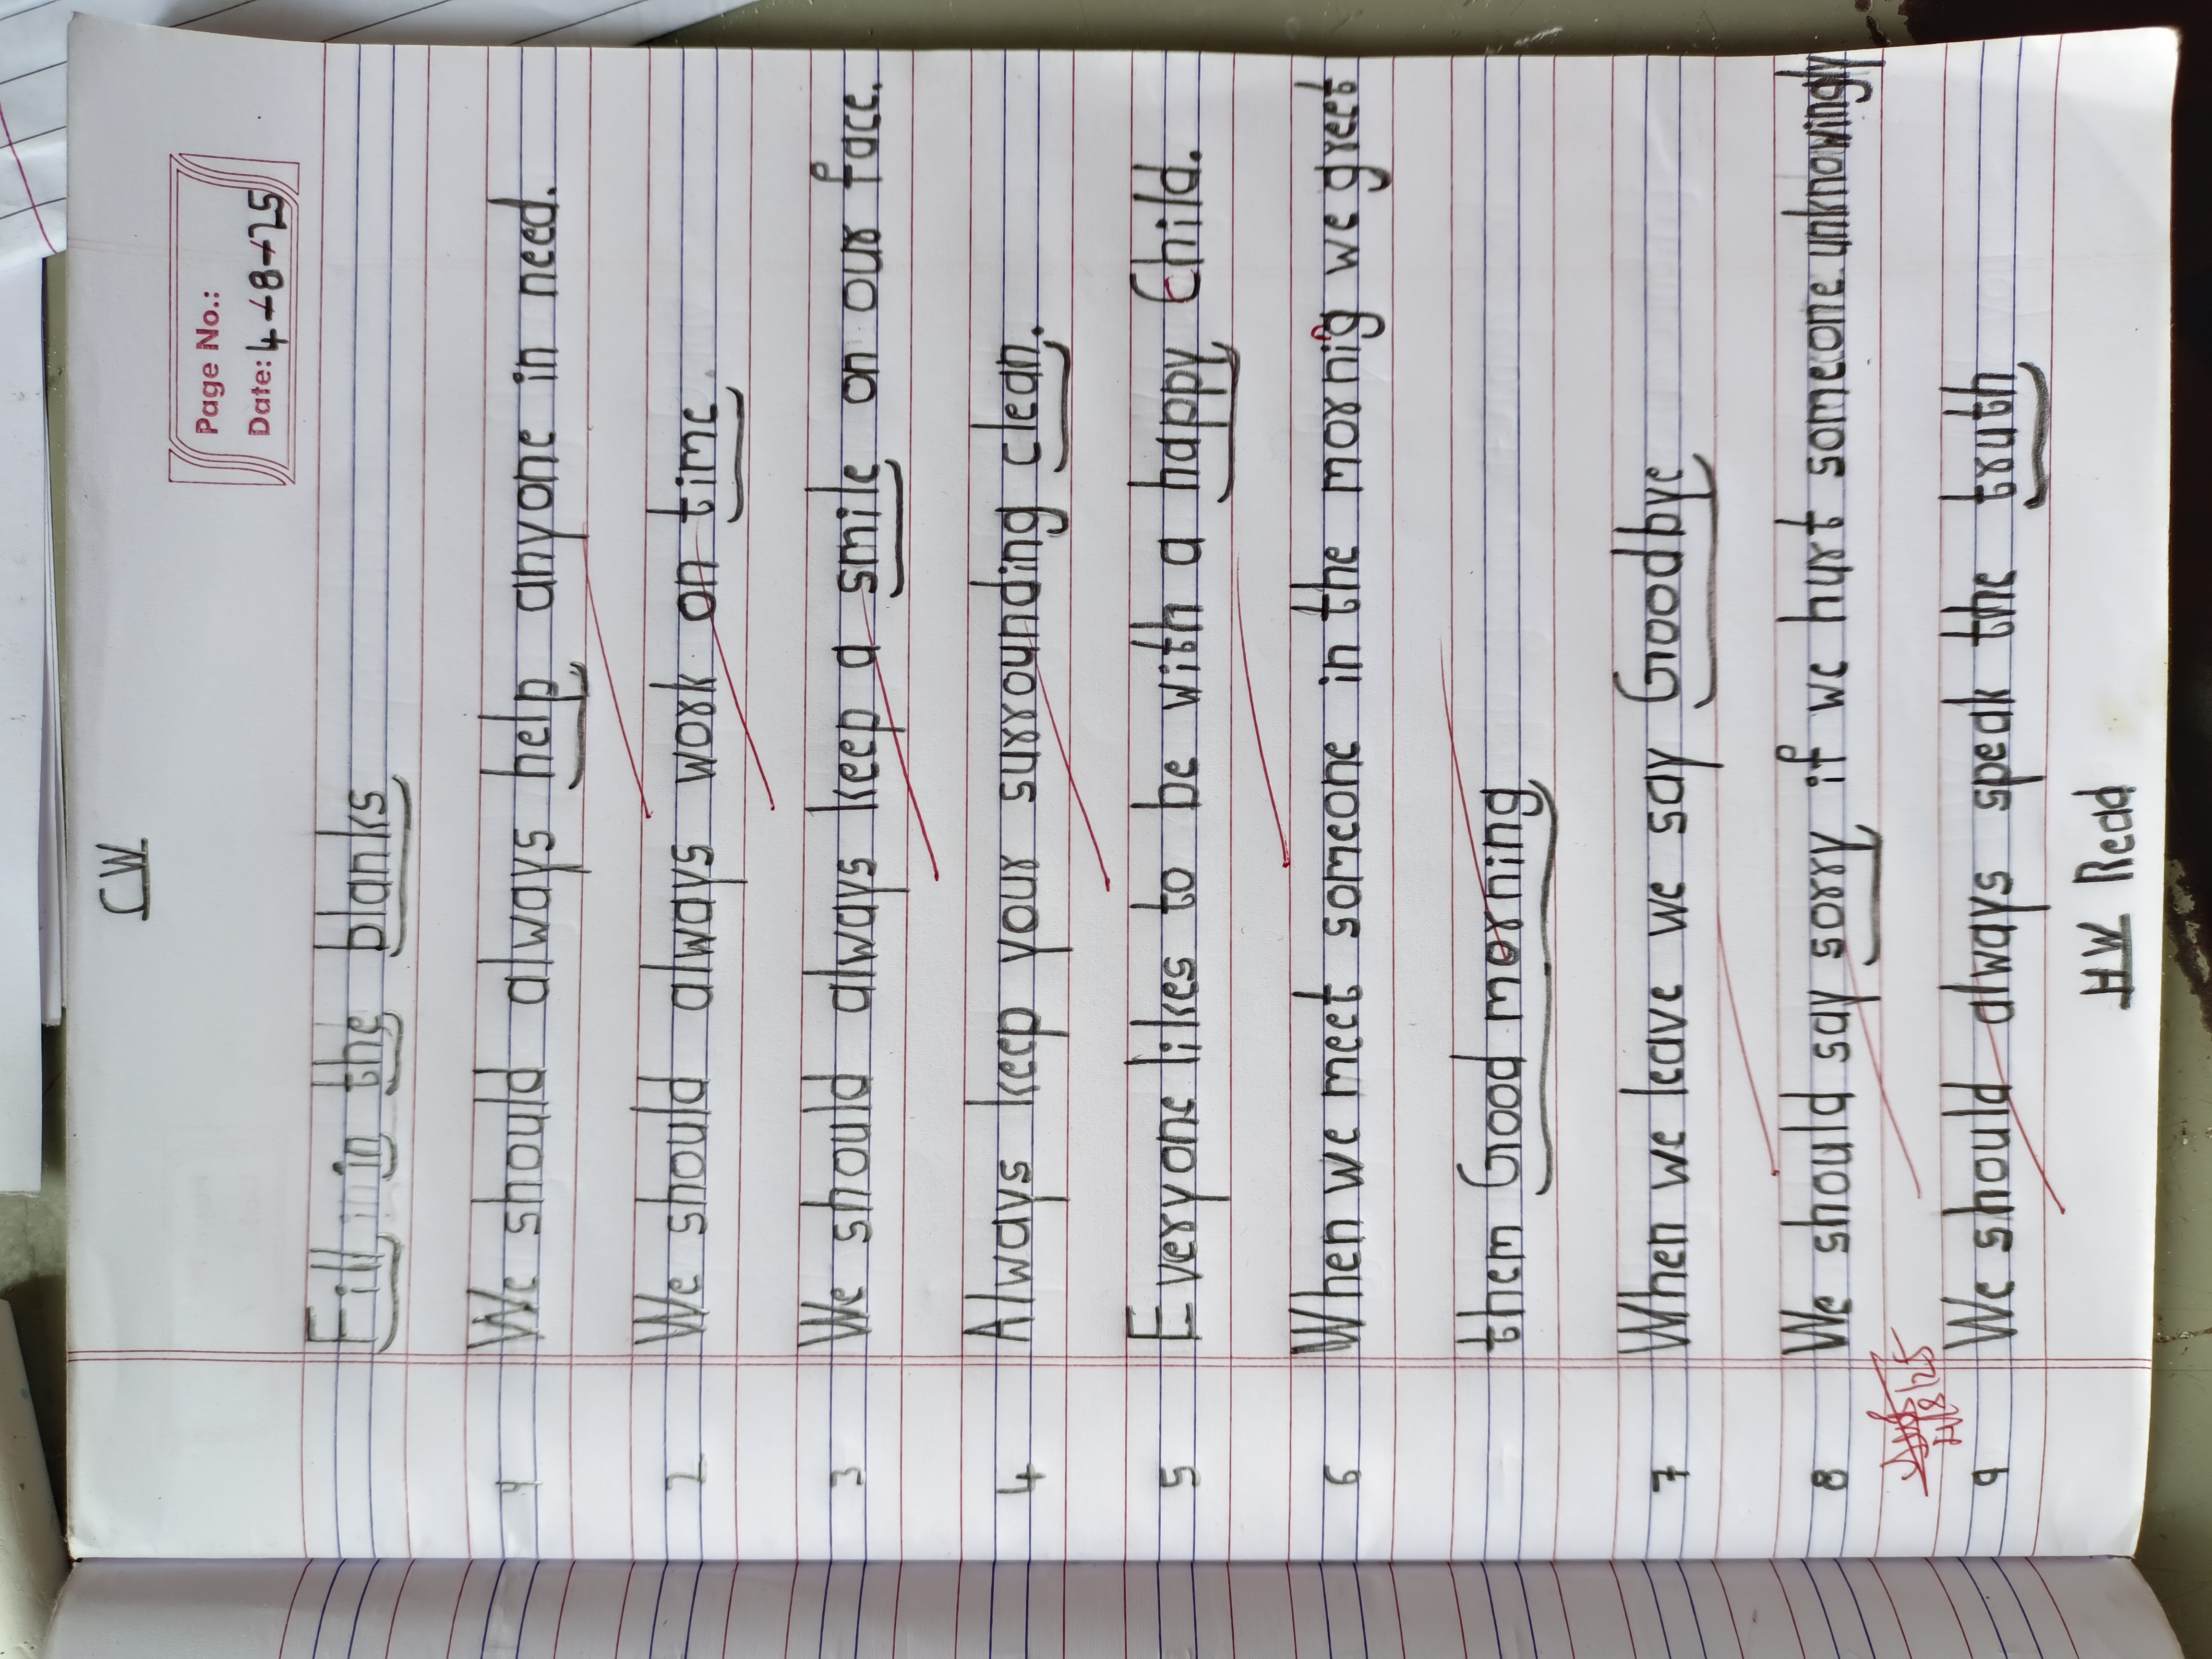 CW
Page No.:
Date: 4-8-25
Fill in the blanks
1 We should always help anyone in need.
2 We should always work on time
3 We should always keep a smile on our face.
4 Always keep your surrounding clean.
5 Everyone likes to be with a happy Child.
6 When we meet someone in the mornig we greet
them Good morning
7 When we leave we say Goodbye
8 We should say sorry if we hurt someone unknowingly
9 We should always speak the truth
HW Read